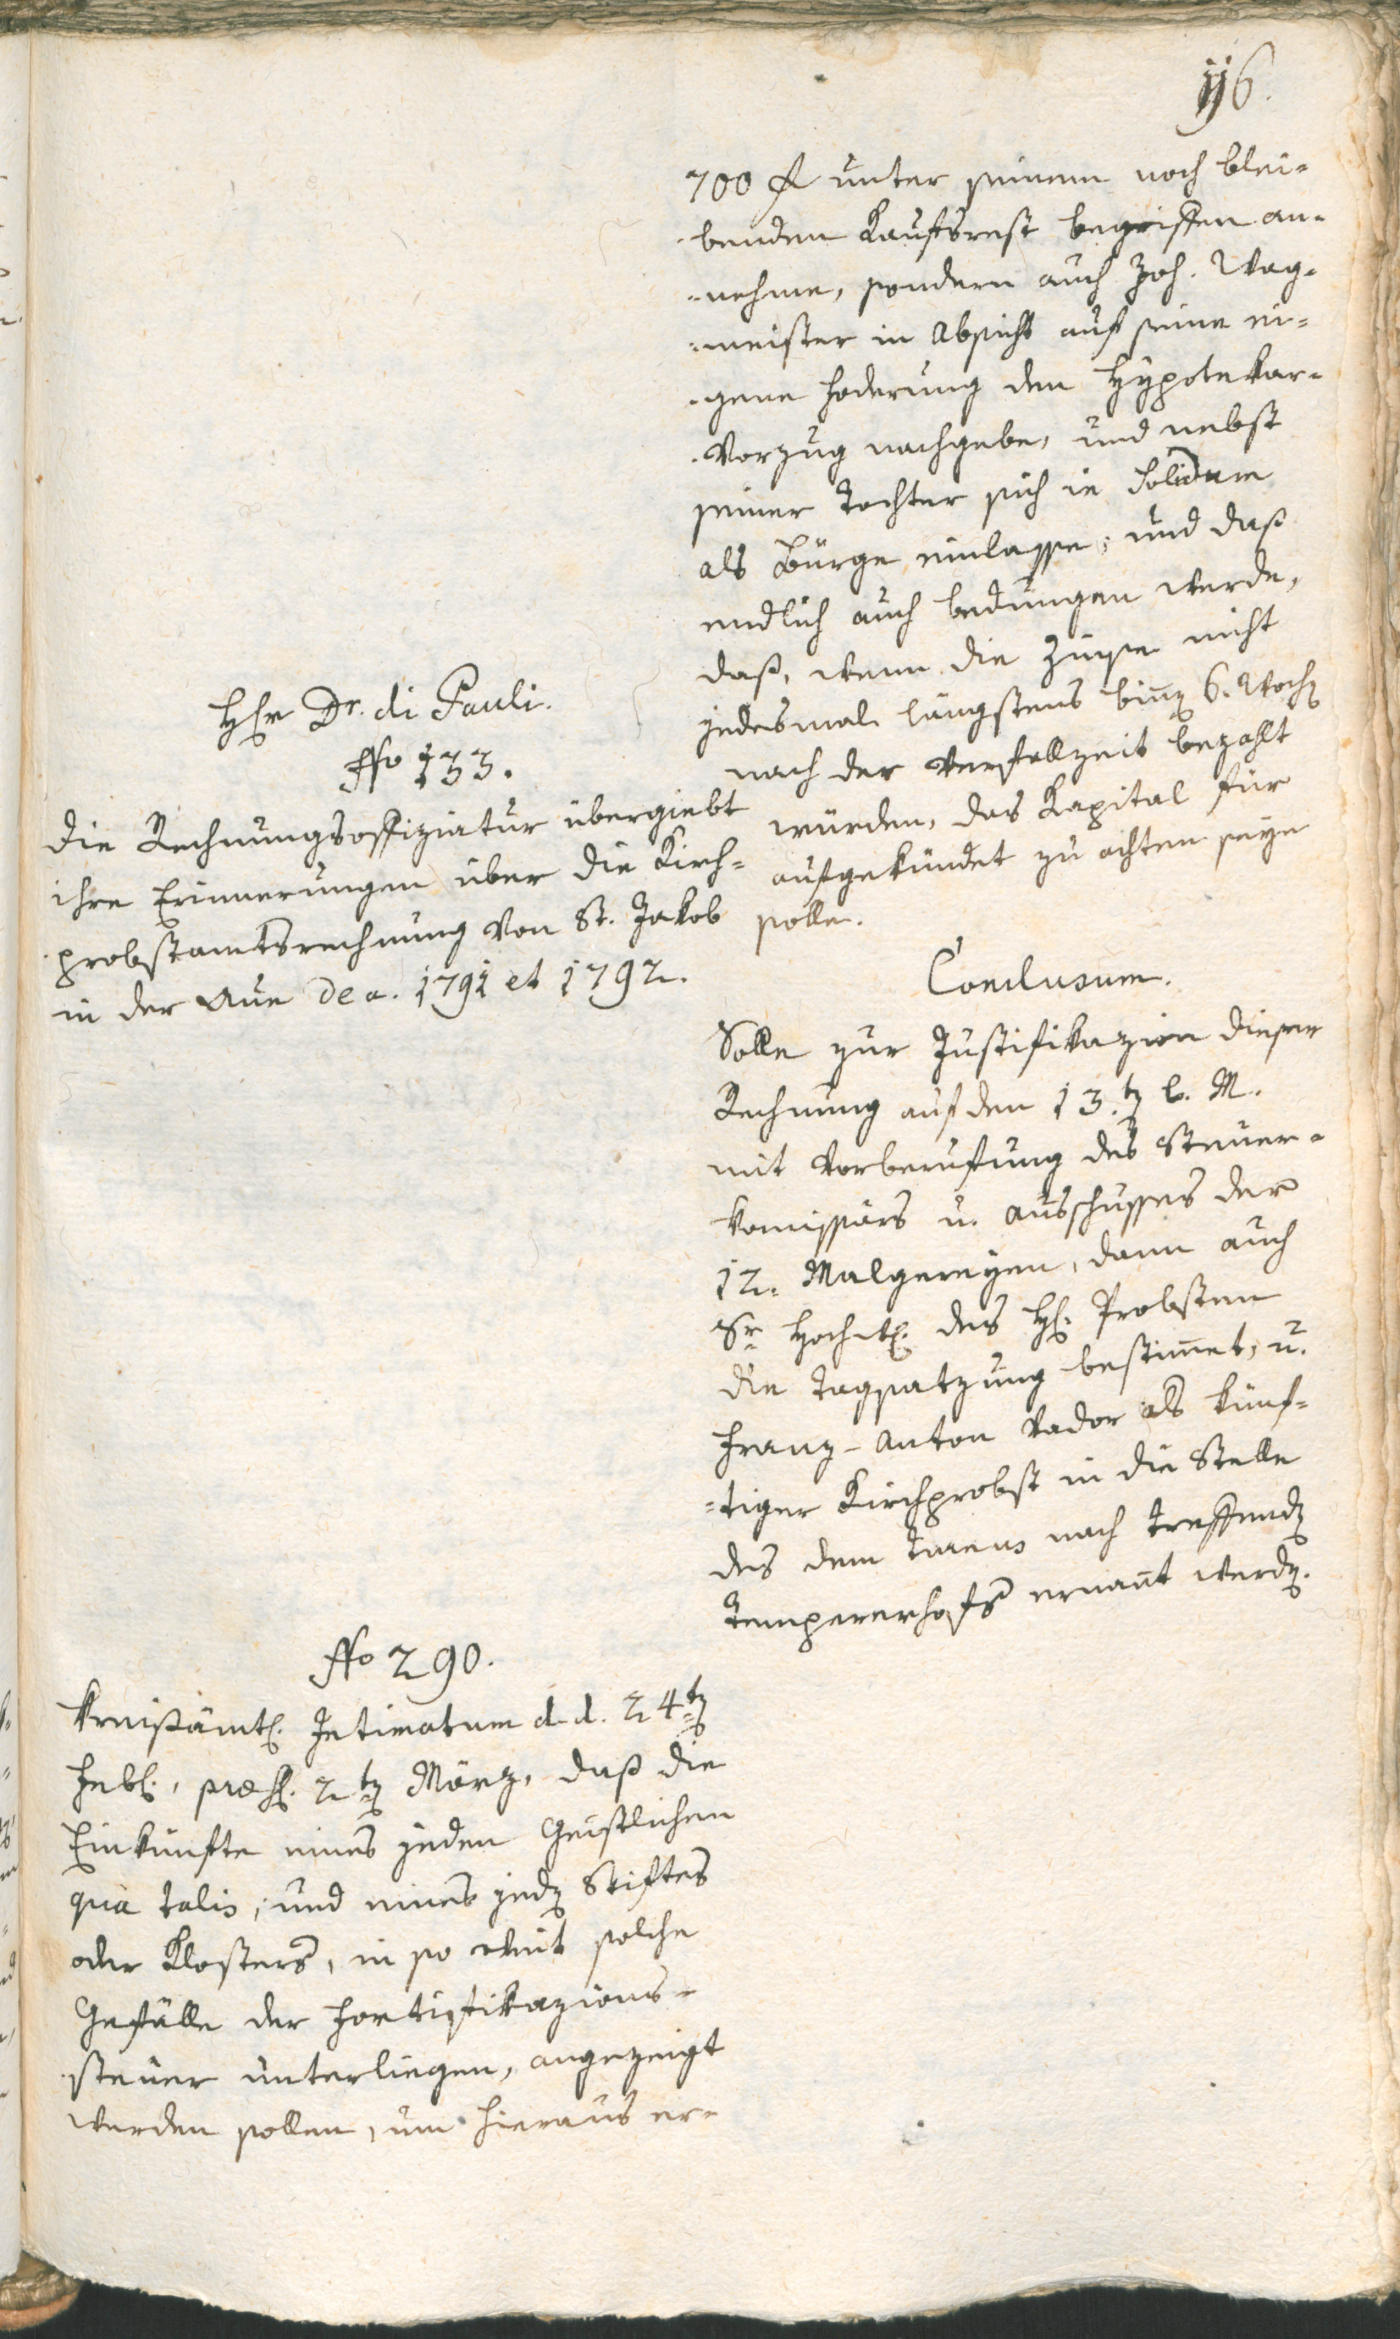 116.
700 fl unter seinem noch blei-
benden Kaufsrest begriffen an-
nehme, sondern auch Joh. Wag-
meister in Absicht auf seine ei-
gene Foderung den Hypotekar-
Vorzug nachgebe, und nebst
seiner Tochter sich in Solidum
als Bürge einlasse; und daß
endlich auch bedungen werde,
daß, wenn die Zinse nicht
jedesmal längstens biñen 6. Wochen
nach der Verfallzeit bezahlt
würden, das Kapital für
aufgekündet zu achten seyn
solle.
Herr Dr. di Pauli.
No 133.
Die Rechnungsoffiziatur übergiebt
ihre Erinnerungen über die Kirch-
probstamtsrechnung von St. Jakob
in der Aue de a. 1791 et 1792.
Conclusum.
Solle zur Justifikazion dieser
Rechnung auf den 13.ten l. M.
mit Vorberufung des Steuer-
komissärs u. Ausschusses der
12. Malgereyen, dann auch
Sr Hochw. des H. Probsten
die Tagsatzung bestim̃et, u.
Franz-Anton Vador als künf-
tiger Kirchprobst in die Stelle
des dem Turnus nach treffenden
Tempererhofs ernañt werden.
No 290.
Kreisämtl. Intimatum d. d. 24ten
Febr., praes. 2ten März, daß die
Einkünfte eines jeden Geistlichen
qua talis, und eines jeden Stiftes
oder Klosters, in so weit solche
Gefälle der Fortifikazions-
steuer unterliegen, angezeigt
werden sollen, um hieraus er-